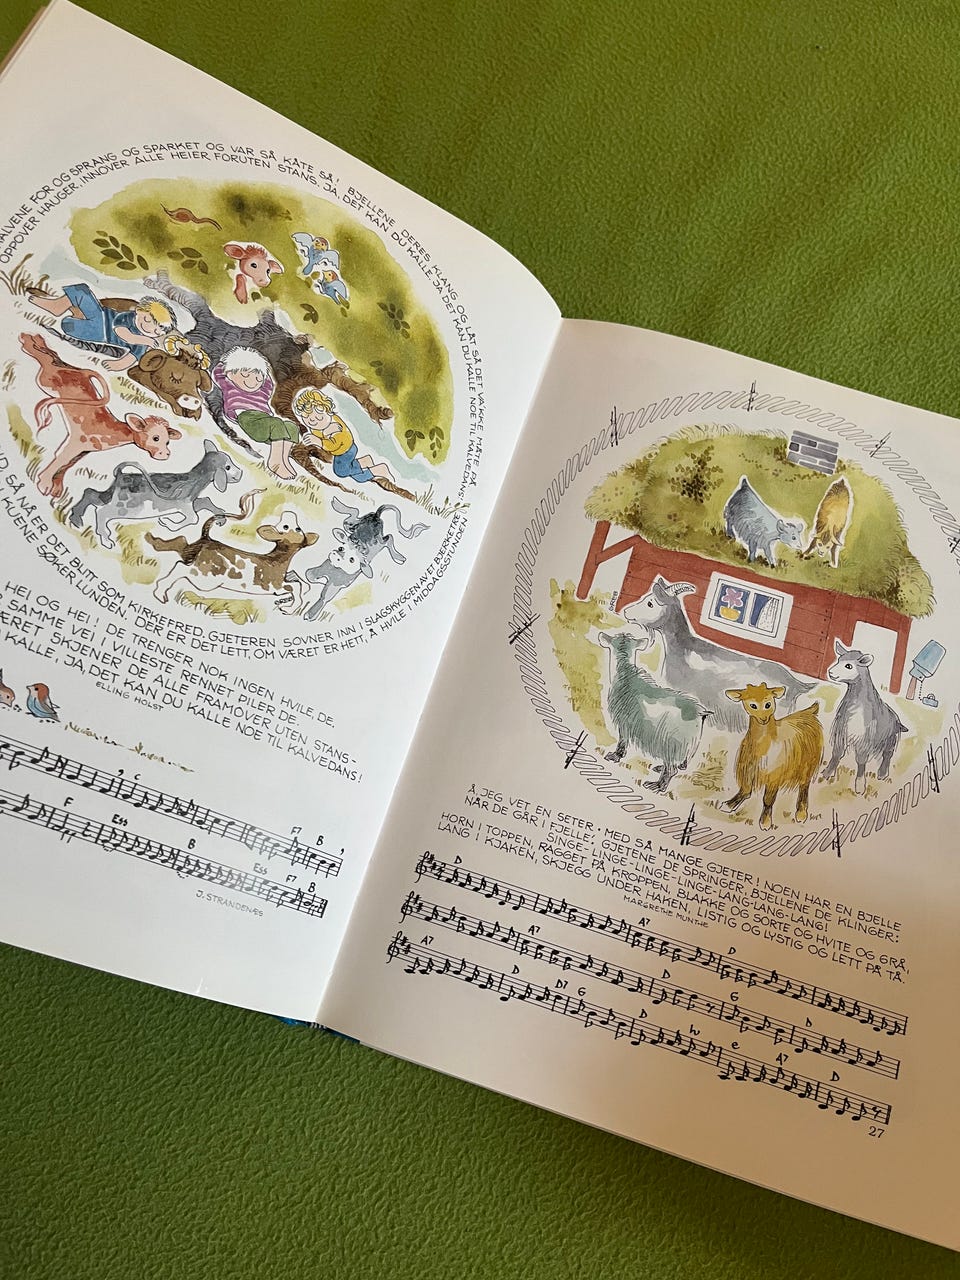 KALVENE FOR OG SPRANG OG SPARKET OG VAR SÅ KÅTE SÅ! BJELLENE DERES KLANG OG LÅT SÅ DET VA'KKE MÅTE PÅ
OPPOVER HAUGER, INNOVER ALLE HEIER, FORUTEN STANS. JA, DET KAN DU KALLE, JA DET KAN DU KALLE NOE TIL KALVEDANS!
SÅ NÅ ER DET BLITT SOM KIRKEFRED. GJETEREN SOVNER INN I SLAGSKYGGEN AV ET BJERKETRE
KUENE SØKER LUNDEN, DER ER DET LETT, OM VÆRET ER HETT, Å HVILE I MIDDAGSSTUNDEN
HEI OG HEI! DE TRENGER NOK INGEN HVILE, DE,
SAMME VEI I VILLESTE RENNET PILER DE.
SKJENER DE ALLE FRAMOVER UTEN STANS-
KALLE, JA, DET KAN DU KALLE NOE TIL KALVEDANS!
ELLING HOLST
C F7 B
F Ess B Ess F7 B
J. STRANDENÆS
Å, JEG VET EN SETER • MED SÅ MANGE GJETER! NOEN HAR EN BJELLE
NÅR DE GÅR I FJELLE', GJETENE DE SPRINGER, BJELLENE DE KLINGER:
SINGE-LINGE-LINGE-LINGE-LANG-LANG-LANG!
HORN I TOPPEN, RAGGET PÅ KROPPEN, BLAKKE OG SORTE OG HVITE OG GRÅ,
LANG I KJAKEN, SKJEGG UNDER HAKEN, LISTIG OG LYSTIG OG LETT PÅ TÅ.
MARGRETHE MUNTHE
D A7 D
A7 D G D
A7 D D7 G D h e A7 D
27